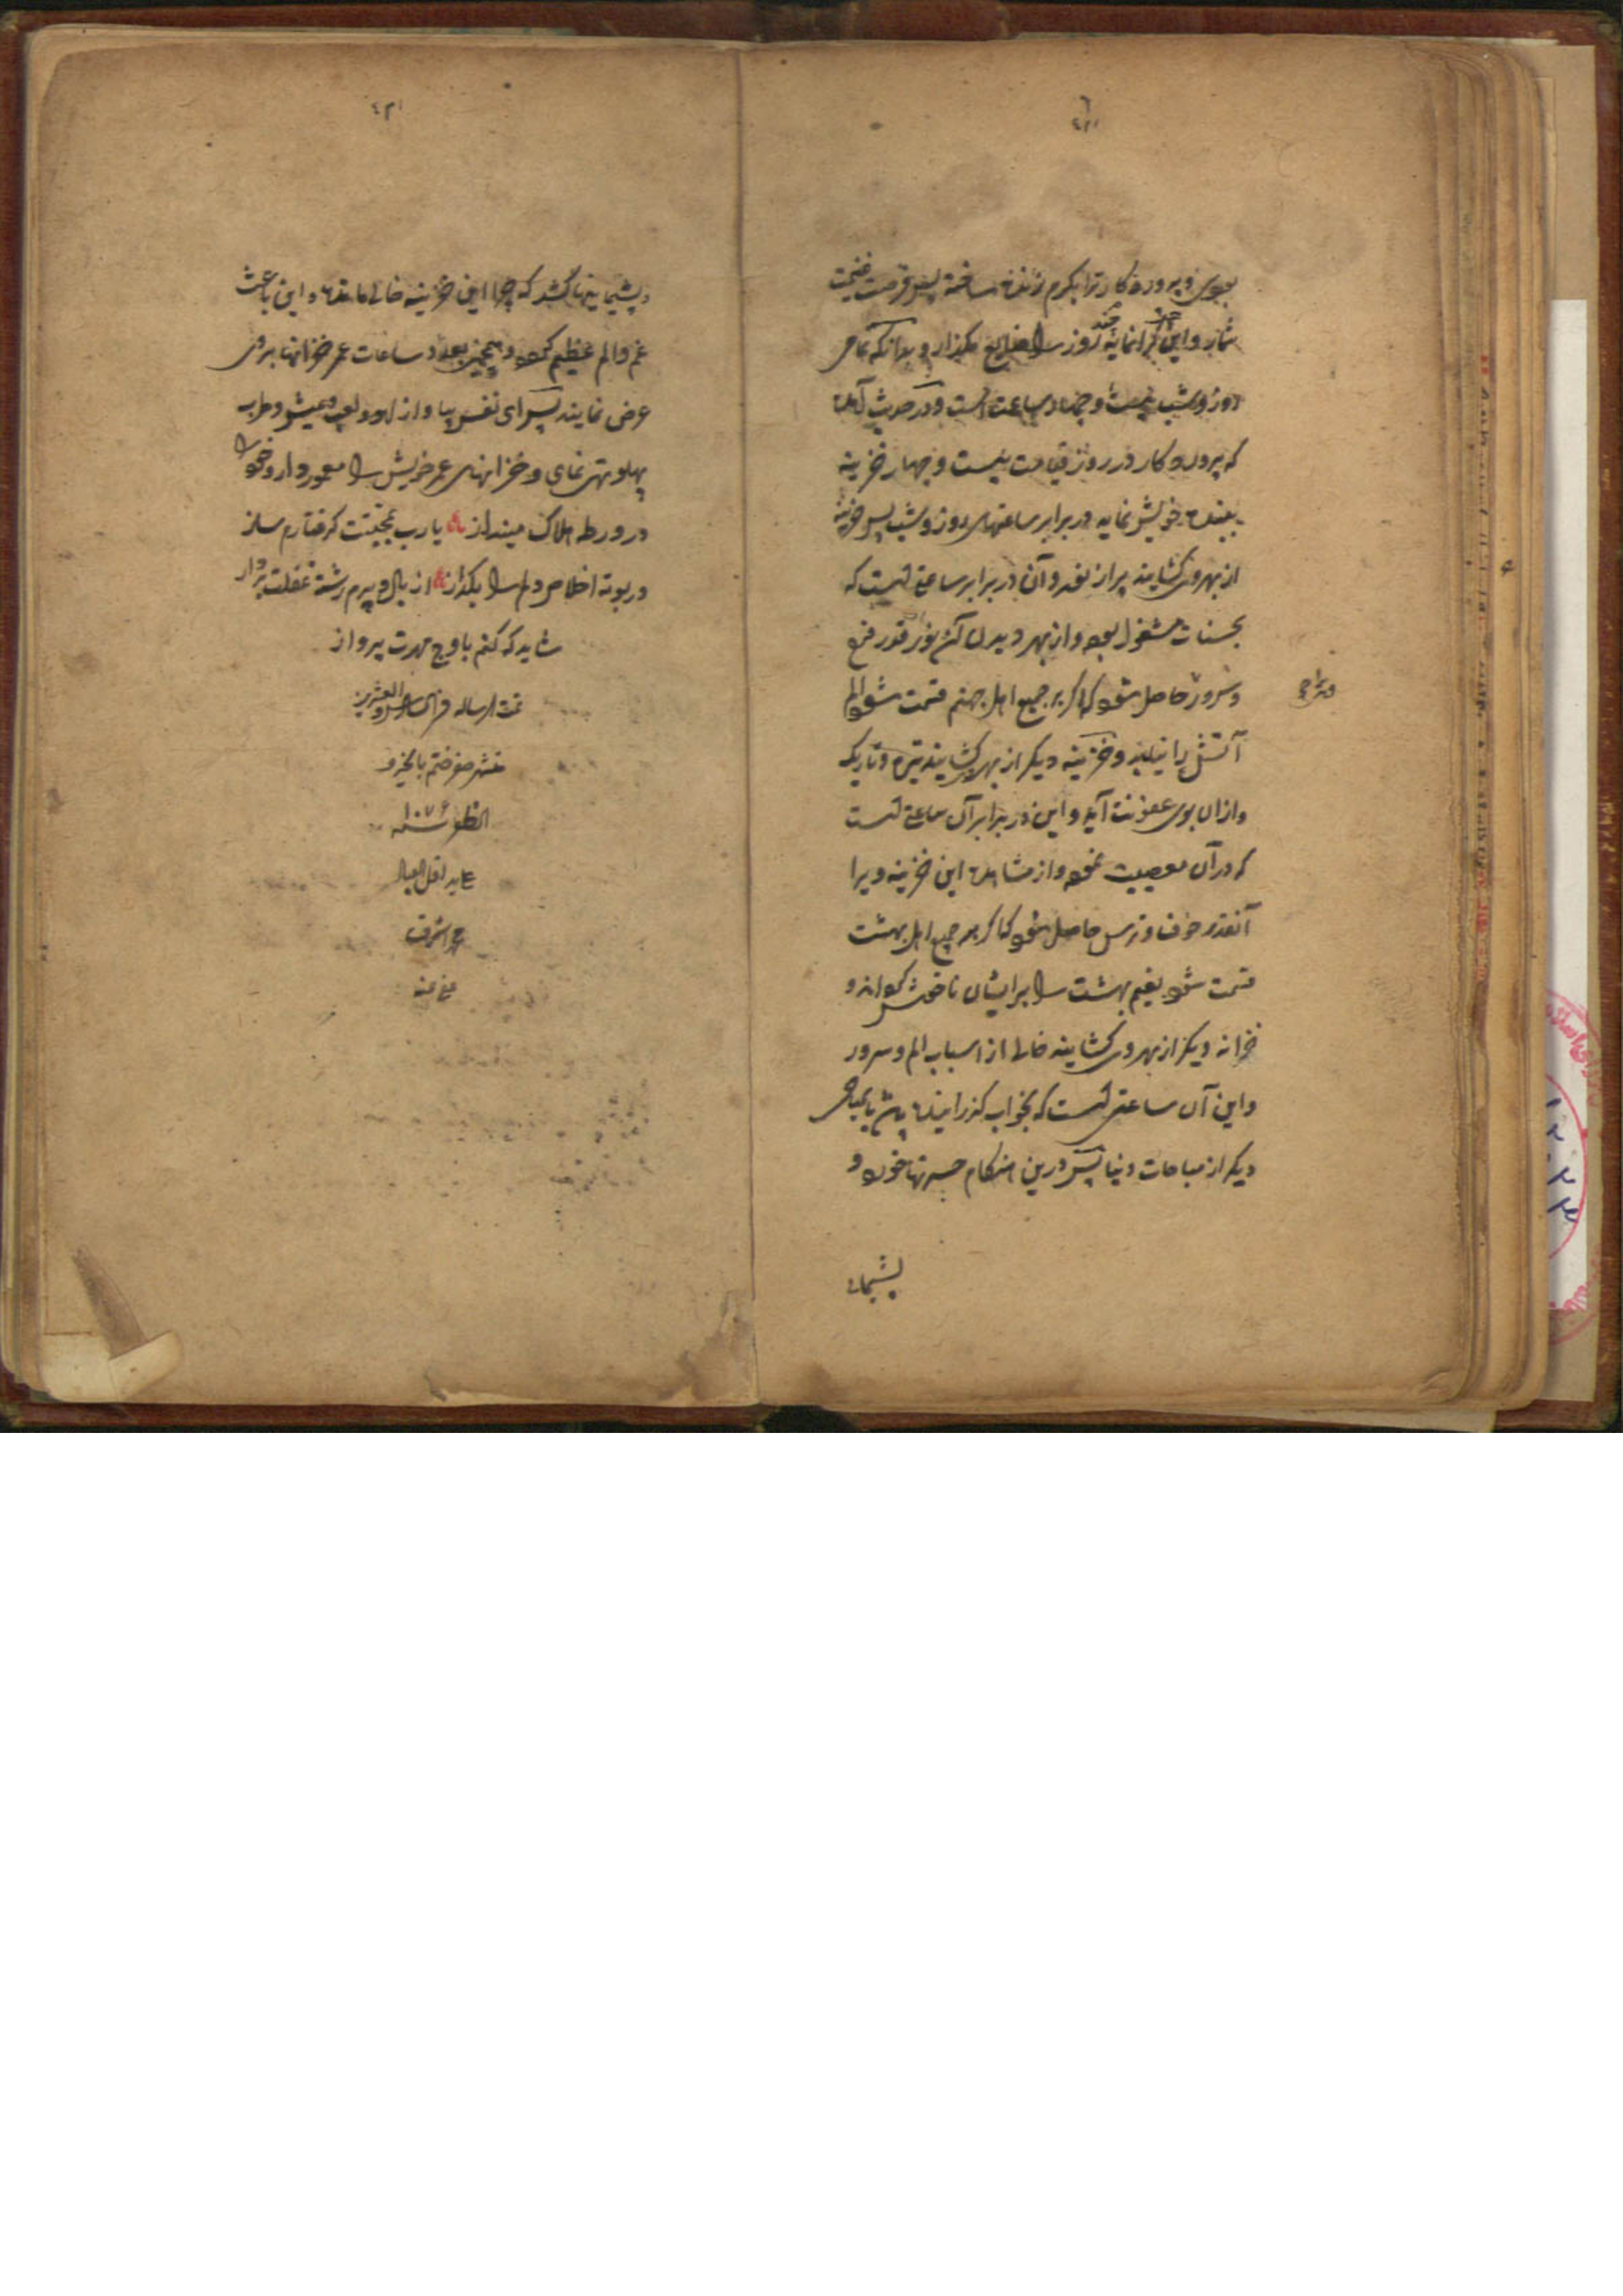 بودی و پروردکار ترا بکرم زنده ساخته پس فرصت غنیمت
شمار و این کرانمایه چند روز را ضایع مکذار و بدانکه تمامی
روز و شب بیست و چهار ساعت است و در حدیث آمده
که پروردکار در روز قیامت بیست و چهار خزینه
ببنده خویش نماید در برابر ساعتهای روز و شب پس خزینه
از بهر وی کشایند پر از نور و آن در برابر ساعتی است که
بحسنات مشغول بوده و از بهر دیدن آن نور فرح
و سرور حاصل شود که اکر بر جمیع اهل جهنم قسمت شود الم
آتش را نیابند و خزینه دیکر از بهر وی کشایند تیره و تاریک
و ازان بوی عفونت آید و این در برابر آن ساعتی است
که در آن معصیت نموده و از مشاهده این خزینه ویرا
آنقدر خوف و ترس حاصل شود که اکر بر جمیع اهل بهشت
قسمت شود نعیم بهشت را بر ایشان ناخوش کرداند و
خزانه دیکر از بهر وی کشایند خالی از اسباب الم و سرور
و این آن ساعتی است که بخواب کذرانیده باشد یا بمباحی
دیکر از مباحات دنیا پس درین هنکام حسرتها خورد و
پشیمان
و پشیمانیها کشد که چرا این خزینه خالی مانده و این باعث
غم و الم عظیم کردد و همچنین بعدد ساعات عمر خزانها بر وی
عرض نمایند پس ای نفس بیا و از لهو و لعب و عیش و طرب
پهلو تهی نمای و خزانهای عمر خویش را معمور دار و خود را
در ورطه هلاک مینداز یا رب بمحبتت کرفتارم ساز
در بوته اخلاص دلم را بکداز از بال و پرم رشته غفلت بردار
شاید که کنم باوج مهرت پرواز
تمت الرساله فی السادس و العشرین
شهر صفر ختم بالخیر و
الظفر سنه ۱۰۷۶